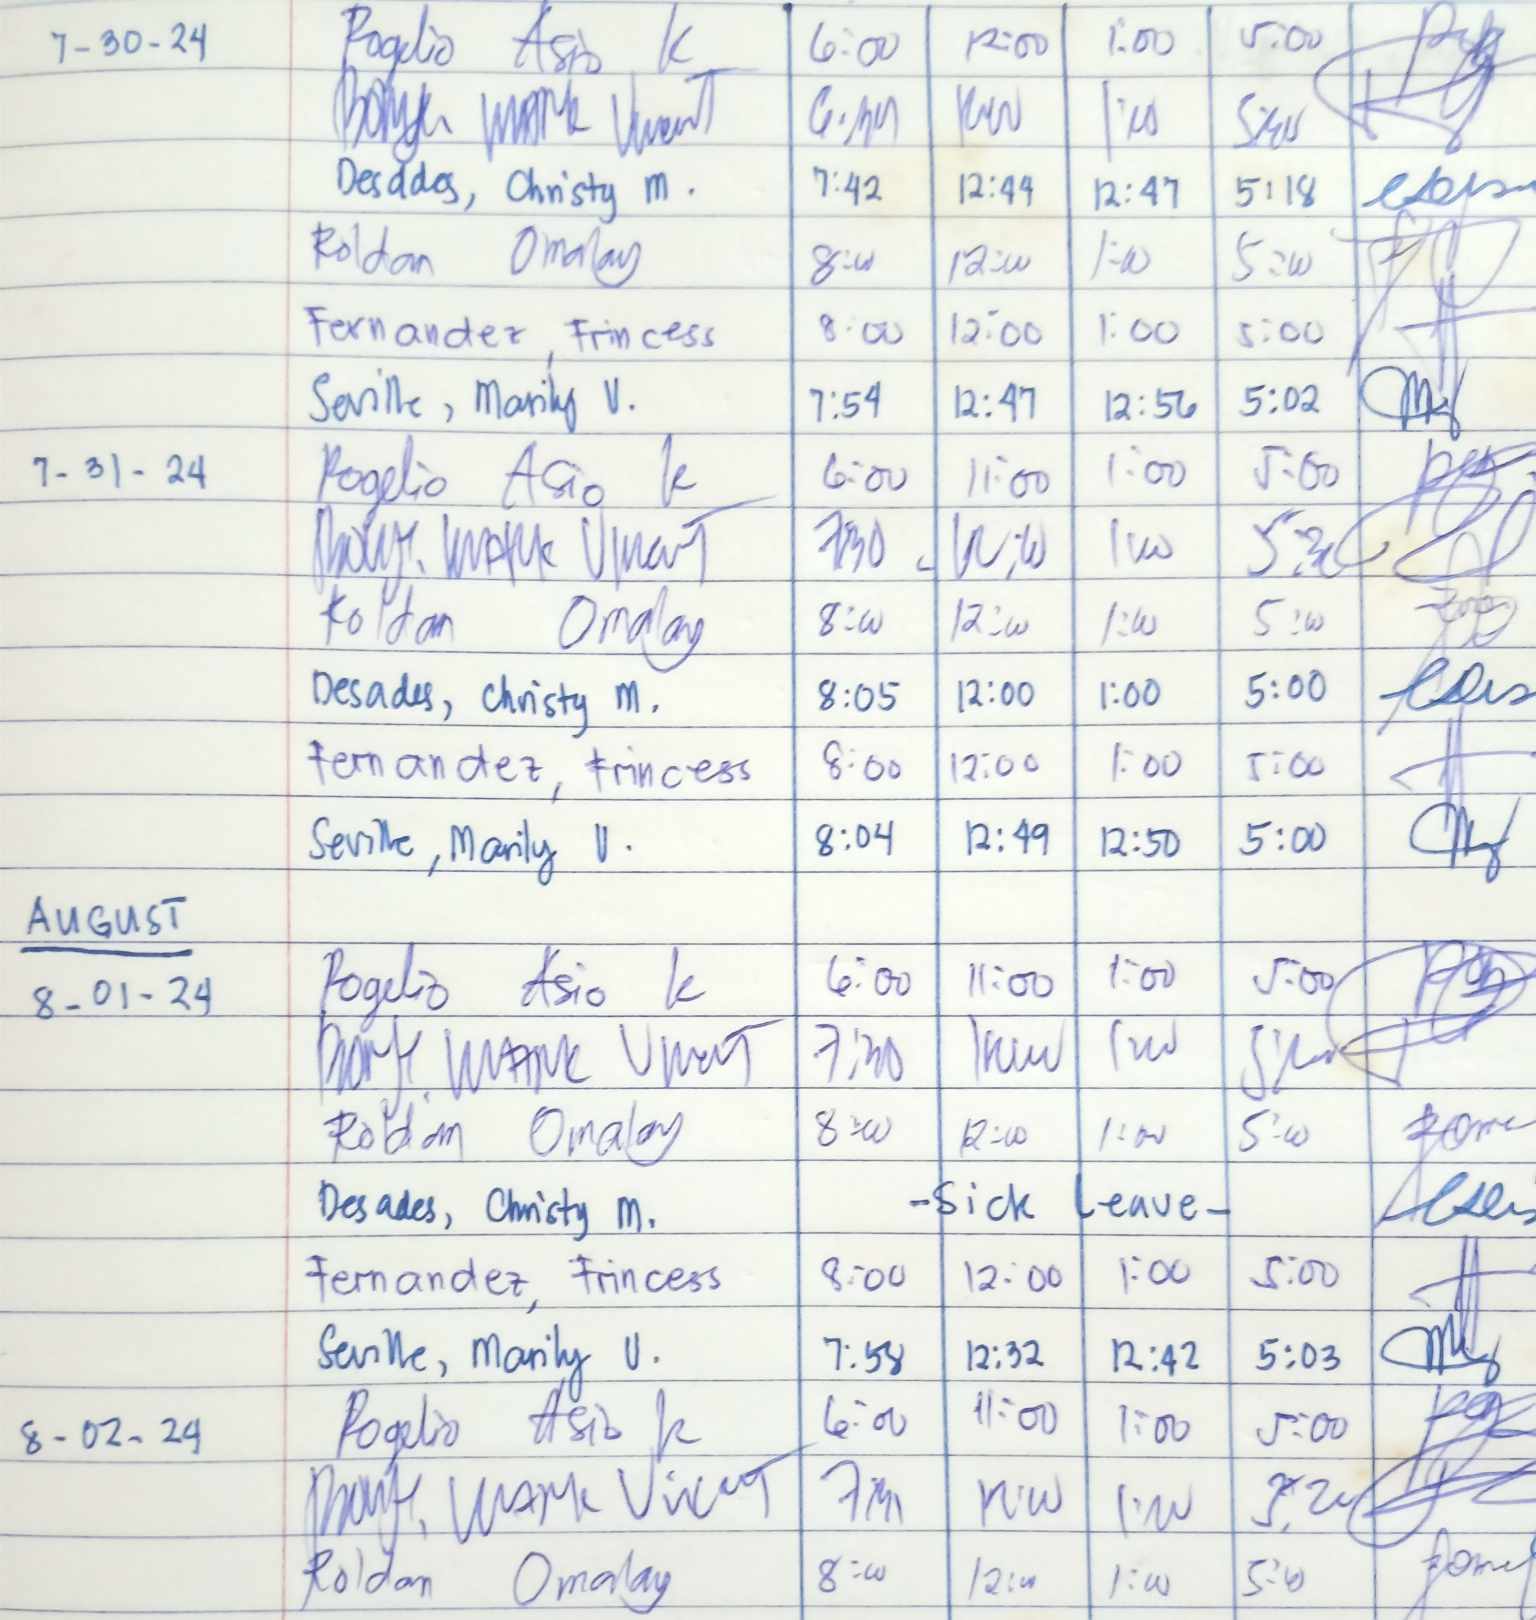 7-30-24 Rogelio Asio K 6:00 12:00 1:00 5:00
MARK Vincent 1:00
Desades, Christy M. 7:42 12:44 12:47 5:18
Roldan Omalay 8:00 12:00 1:00 5:00
Fernandez, Frincess 8:00 12:00 1:00 5:00
Seville, Marily V. 7:54 12:47 12:56 5:02
7-31-24 Rogelio Asio K 6:00 11:00 1:00 5:00
MARK Vincent 7:30 1:00
Roldan Omalay 8:00 12:00 1:00 5:00
Desades, Christy M. 8:05 12:00 1:00 5:00
Fernandez, Frincess 8:00 12:00 1:00 5:00
Seville, Marily V. 8:04 12:49 12:50 5:00
AUGUST
8-01-24 Rogelio Asio K 6:00 11:00 1:00 5:00
MARK Vincent 7:30 1:00
Roldan Omalay 8:00 12:00 1:00 5:00
Desades, Christy M. -Sick Leave-
Fernandez, Frincess 8:00 12:00 1:00 5:00
Seville, Marily V. 7:58 12:32 12:42 5:03
8-02-24 Rogelio Asio K 6:00 11:00 1:00 5:00
MARK Vincent 1:00
Roldan Omalay 8:00 12:00 1:00 5:00